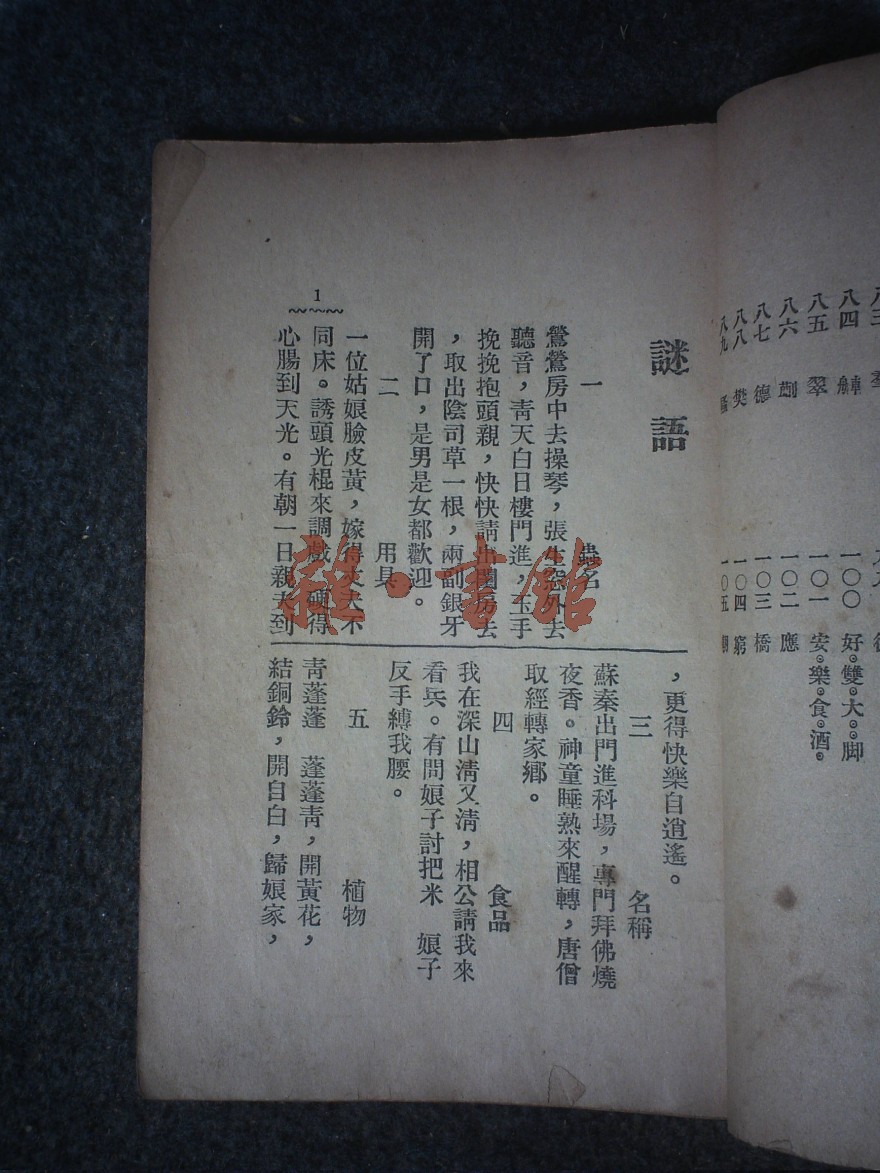 八四
八五 翠
八六 劏
八七 德
八八 樊
八九
一〇〇 好雙大脚
一〇一 安樂食酒
一〇二 應
一〇三 橋
一〇四 窮
一〇五
謎語
一 蟲名
鶯鶯房中去操琴，張生窓外去
聽音，青天白日樓門進，玉手
挽挽抱頭親，快快請出閨房去
，取出陰司草一根，兩副銀牙
開了口，是男是女都歡迎。
二 用具
一位姑娘臉皮黃，嫁得丈夫不
同床。誘頭光棍來調戲，硬得
心腸到天光。有朝一日親夫到
1
，更得快樂自逍遙。
三 名稱
蘇秦出門進科場，專門拜佛燒
夜香。神童睡熟來醒轉，唐僧
取經轉家鄉。
四 食品
我在深山清又清，相公請我來
看兵。有問娘子討把米 娘子
反手縛我腰。
五 植物
青蓬蓬 蓬蓬青，開黃花，
結銅鈴，開自白，歸娘家，
雜·書館